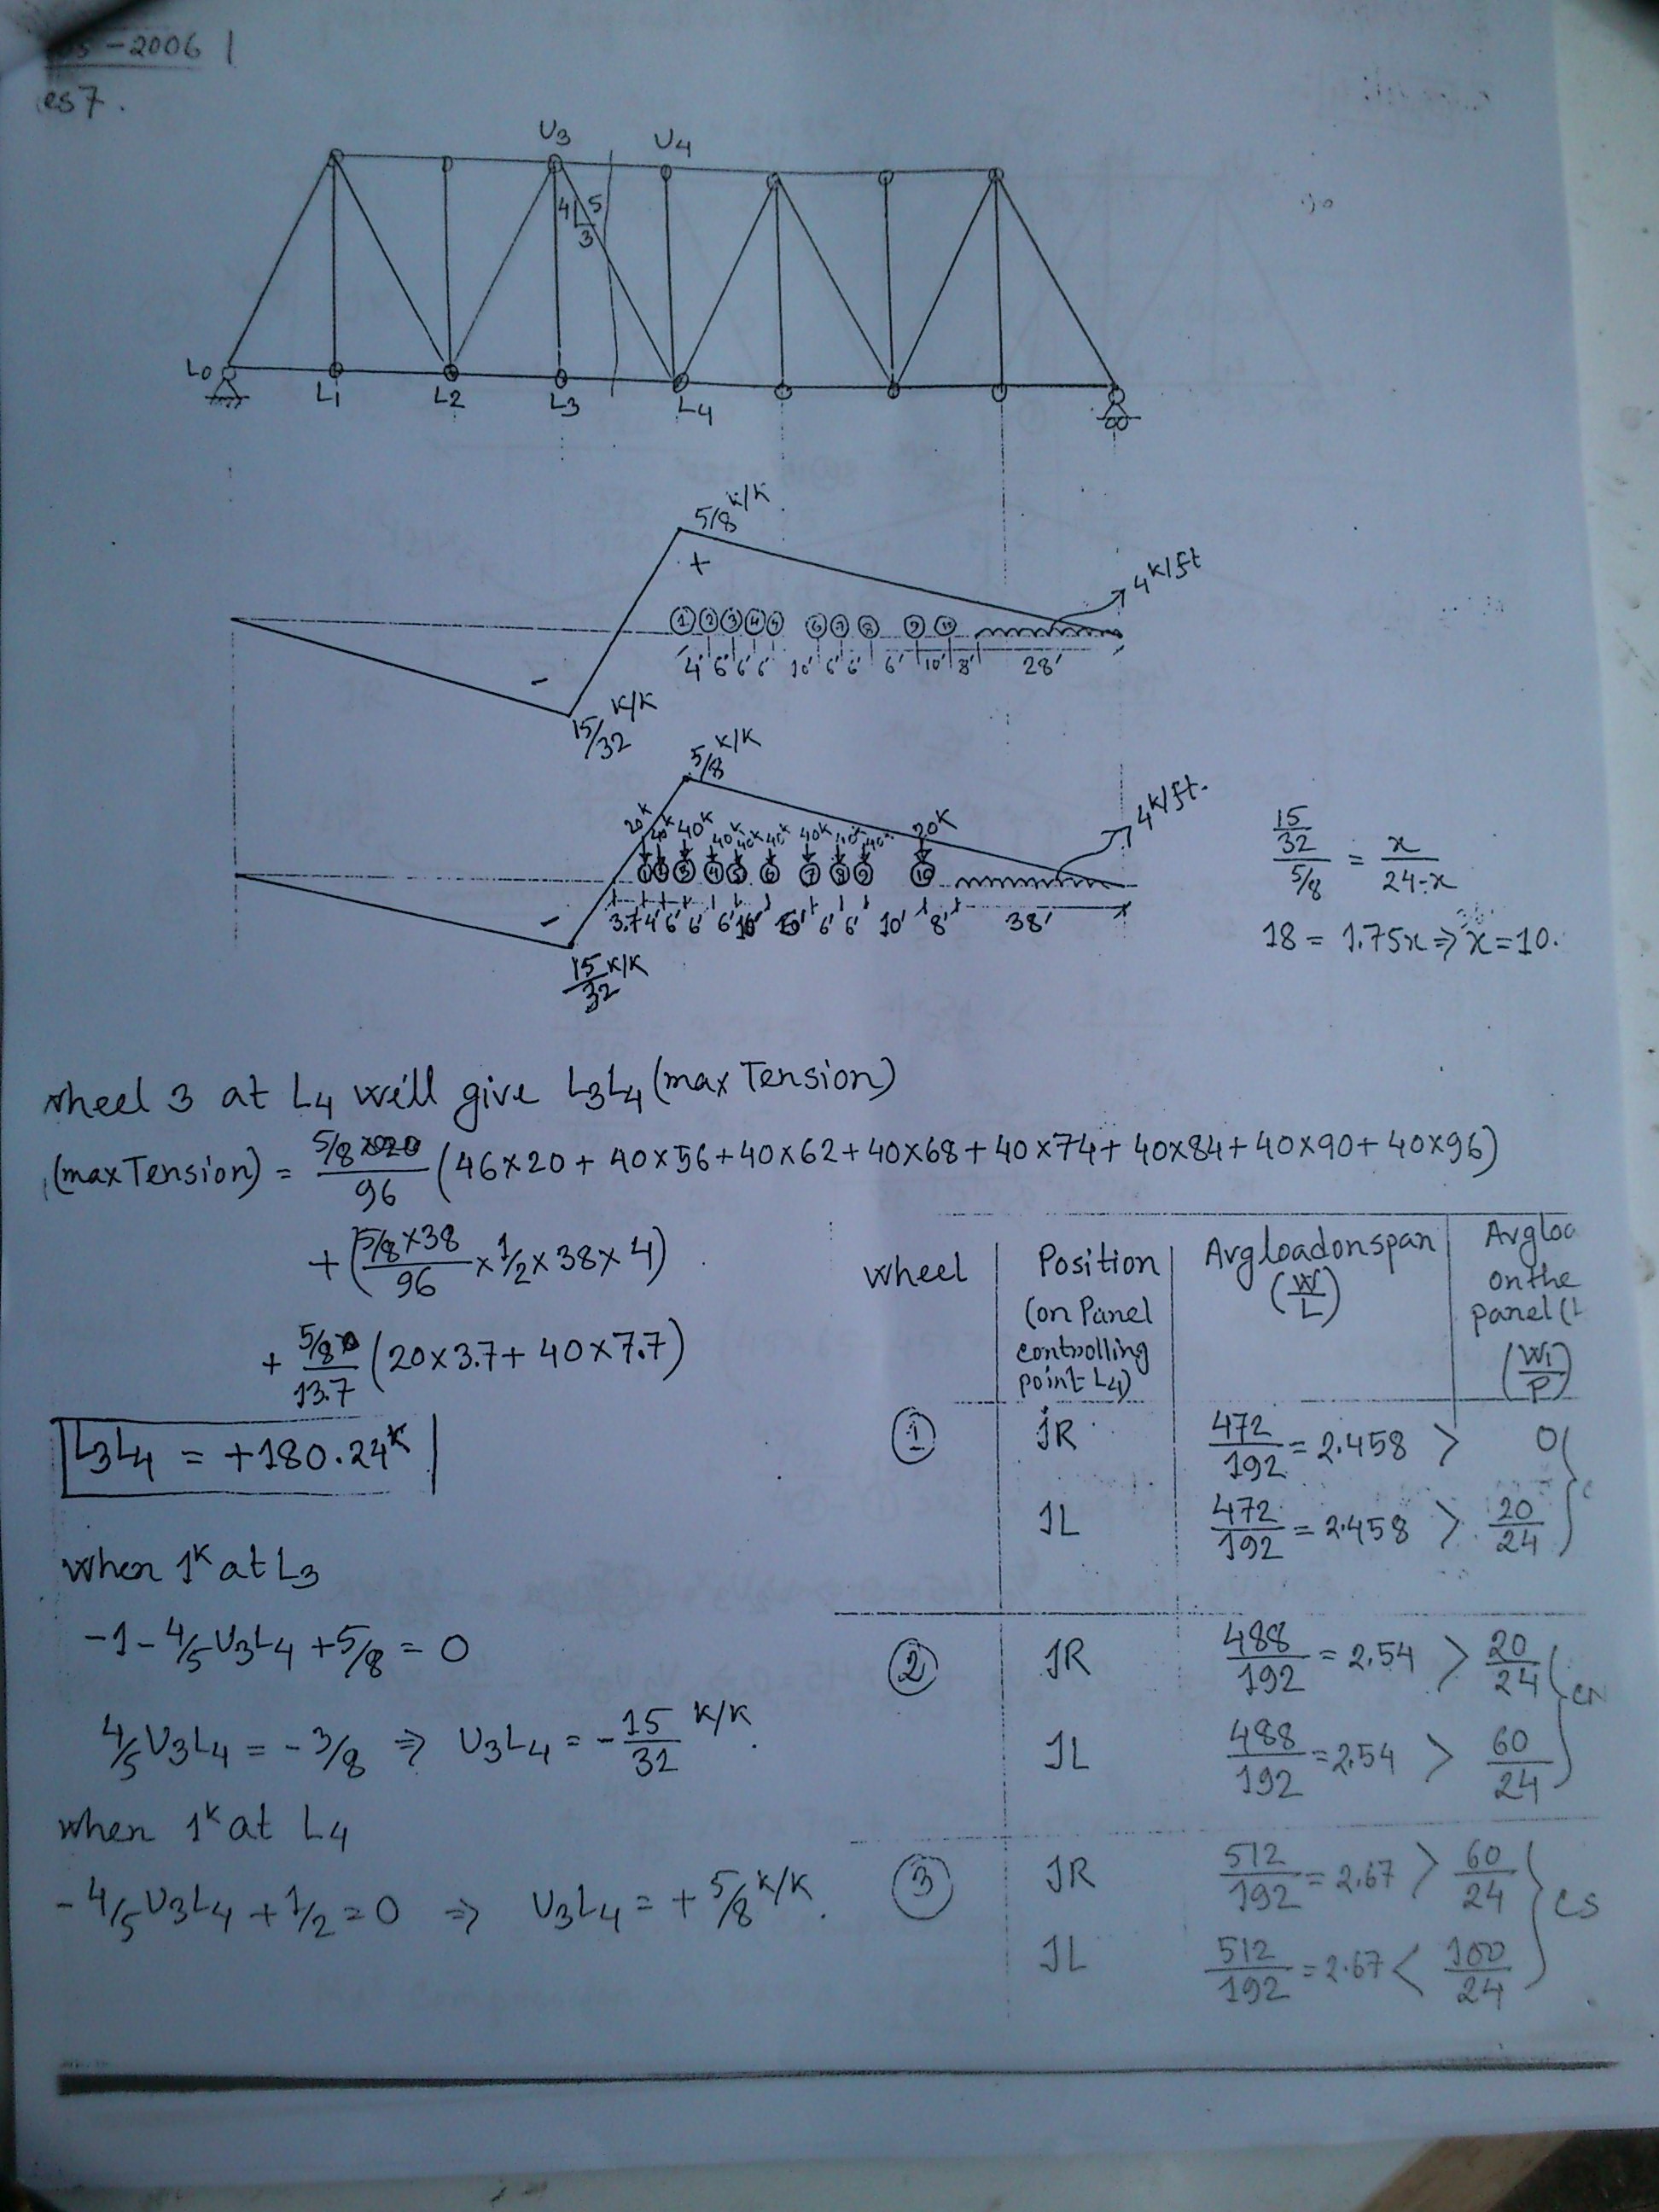 -2006 |
es7.
U3 U4
4 5
3
L0 L1 L2 L3 L4
5/8 K/K
+
4 K/ft
① ② ③ ④ ⑤ ⑥ ⑦ ⑧ ⑨ ⑩
4' 6' 6' 6' 10' 6' 6' 6' 10' 8' 28'
-
15/32 K/K
5/8 K/K
4 K/ft.
20K 40K 40K 40K 40K 40K 40K 40K 40K 20K
① ② ③ ④ ⑤ ⑥ ⑦ ⑧ ⑨ ⑩
3.7 4' 6' 6' 6' 6' 6' 10' 8' 38'
-
15/32 K/K
15/32 / 5/8 = x/24-x
18 = 1.75x ⇒ x = 10.
wheel 3 at L4 will give L3L4 (max Tension)
(max Tension) = 5/8/96 (46×20 + 40×56 + 40×62 + 40×68 + 40×74 + 40×84 + 40×90 + 40×96)
+ (5/8×38/96 × 1/2 × 38 × 4)
+ 5/8/13.7 (20×3.7 + 40×7.7)
L3L4 = +180.24K
when 1K at L3
-1 - 4/5 U3L4 + 5/8 = 0
4/5 U3L4 = - 3/8 ⇒ U3L4 = - 15/32 K/K.
when 1K at L4
- 4/5 U3L4 + 1/2 = 0 ⇒ U3L4 = + 5/8 K/K.
wheel Position (on Panel controlling point L4) Avg load on span (W/L) Avg loa on the panel (W1/P)
① JR 472/192 = 2.458 > 0
JL 472/192 = 2.458 > 20/24
② JR 488/192 = 2.54 > 20/24
JL 488/192 = 2.54 > 60/24
③ JR 512/192 = 2.67 > 60/24 CS
JL 512/192 = 2.67 < 100/24